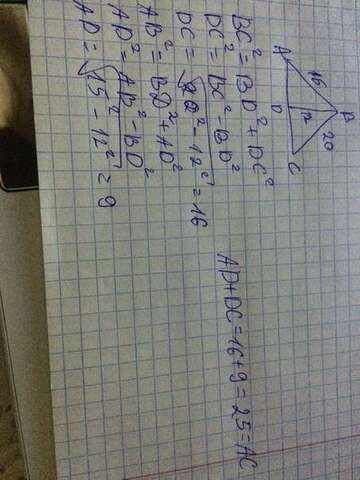 B
15 12 20
A D C
BC² = BD² + DC²
DC² = BC² - BD²
DC = √20² - 12² = 16
AB² = BD² + AD²
AD² = AB² - BD²
AD = √15² - 12² = 9
AD + DC = 16 + 9 = 25 = AC